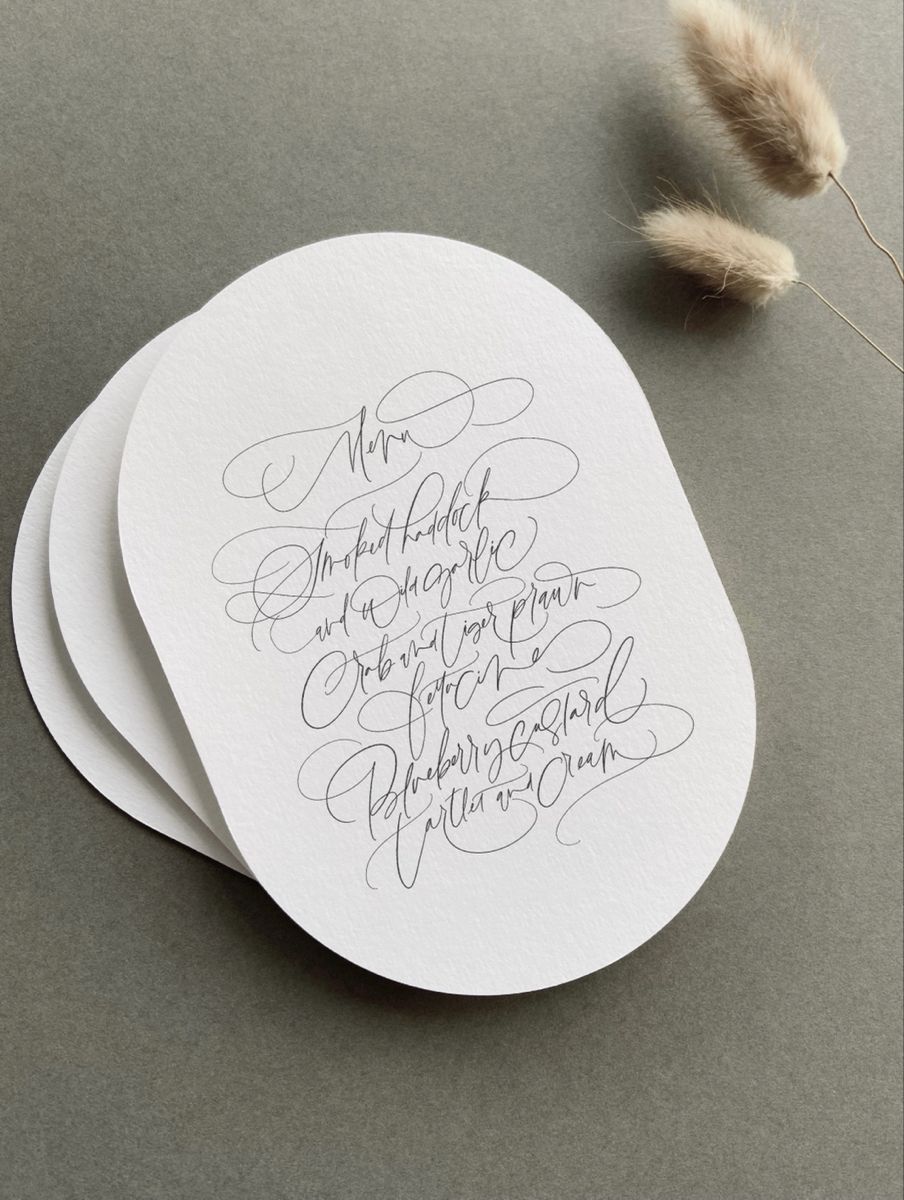 Menu
Smoked haddock
and wild garlic
Crab and tiger prawn
fettucine
Blueberry custard
tartlet and cream